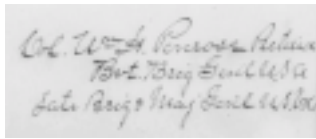 Col. Wm H. Penrose Retired
Bvt. Brig Genl U S A
Late Brig & Maj Genl U S Vol